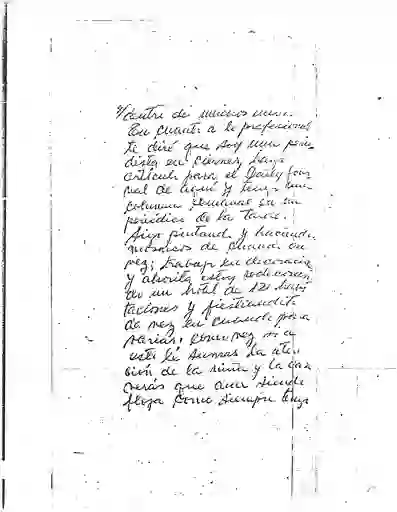 4/ dentro de muchos meses.
En cuanto a lo profesional
te diré que soy una perio
dista en ciernes, hago
artículos para el Daily Jour
nal de aquí y tengo una
columna semanal en un
periódico de la tarde.
Sigo pintando y haciendo
mosaicos de cuando en
vez; trabajo en decoración
y ahorita estoy redecoran
do un hotel de 120 habi
taciones y fiestecita
de vez en cuando para
variar. Como vez si a
esto le sumas la aten
ción de la niña y la casa
verás que aun siendo
floja como siempre tengo